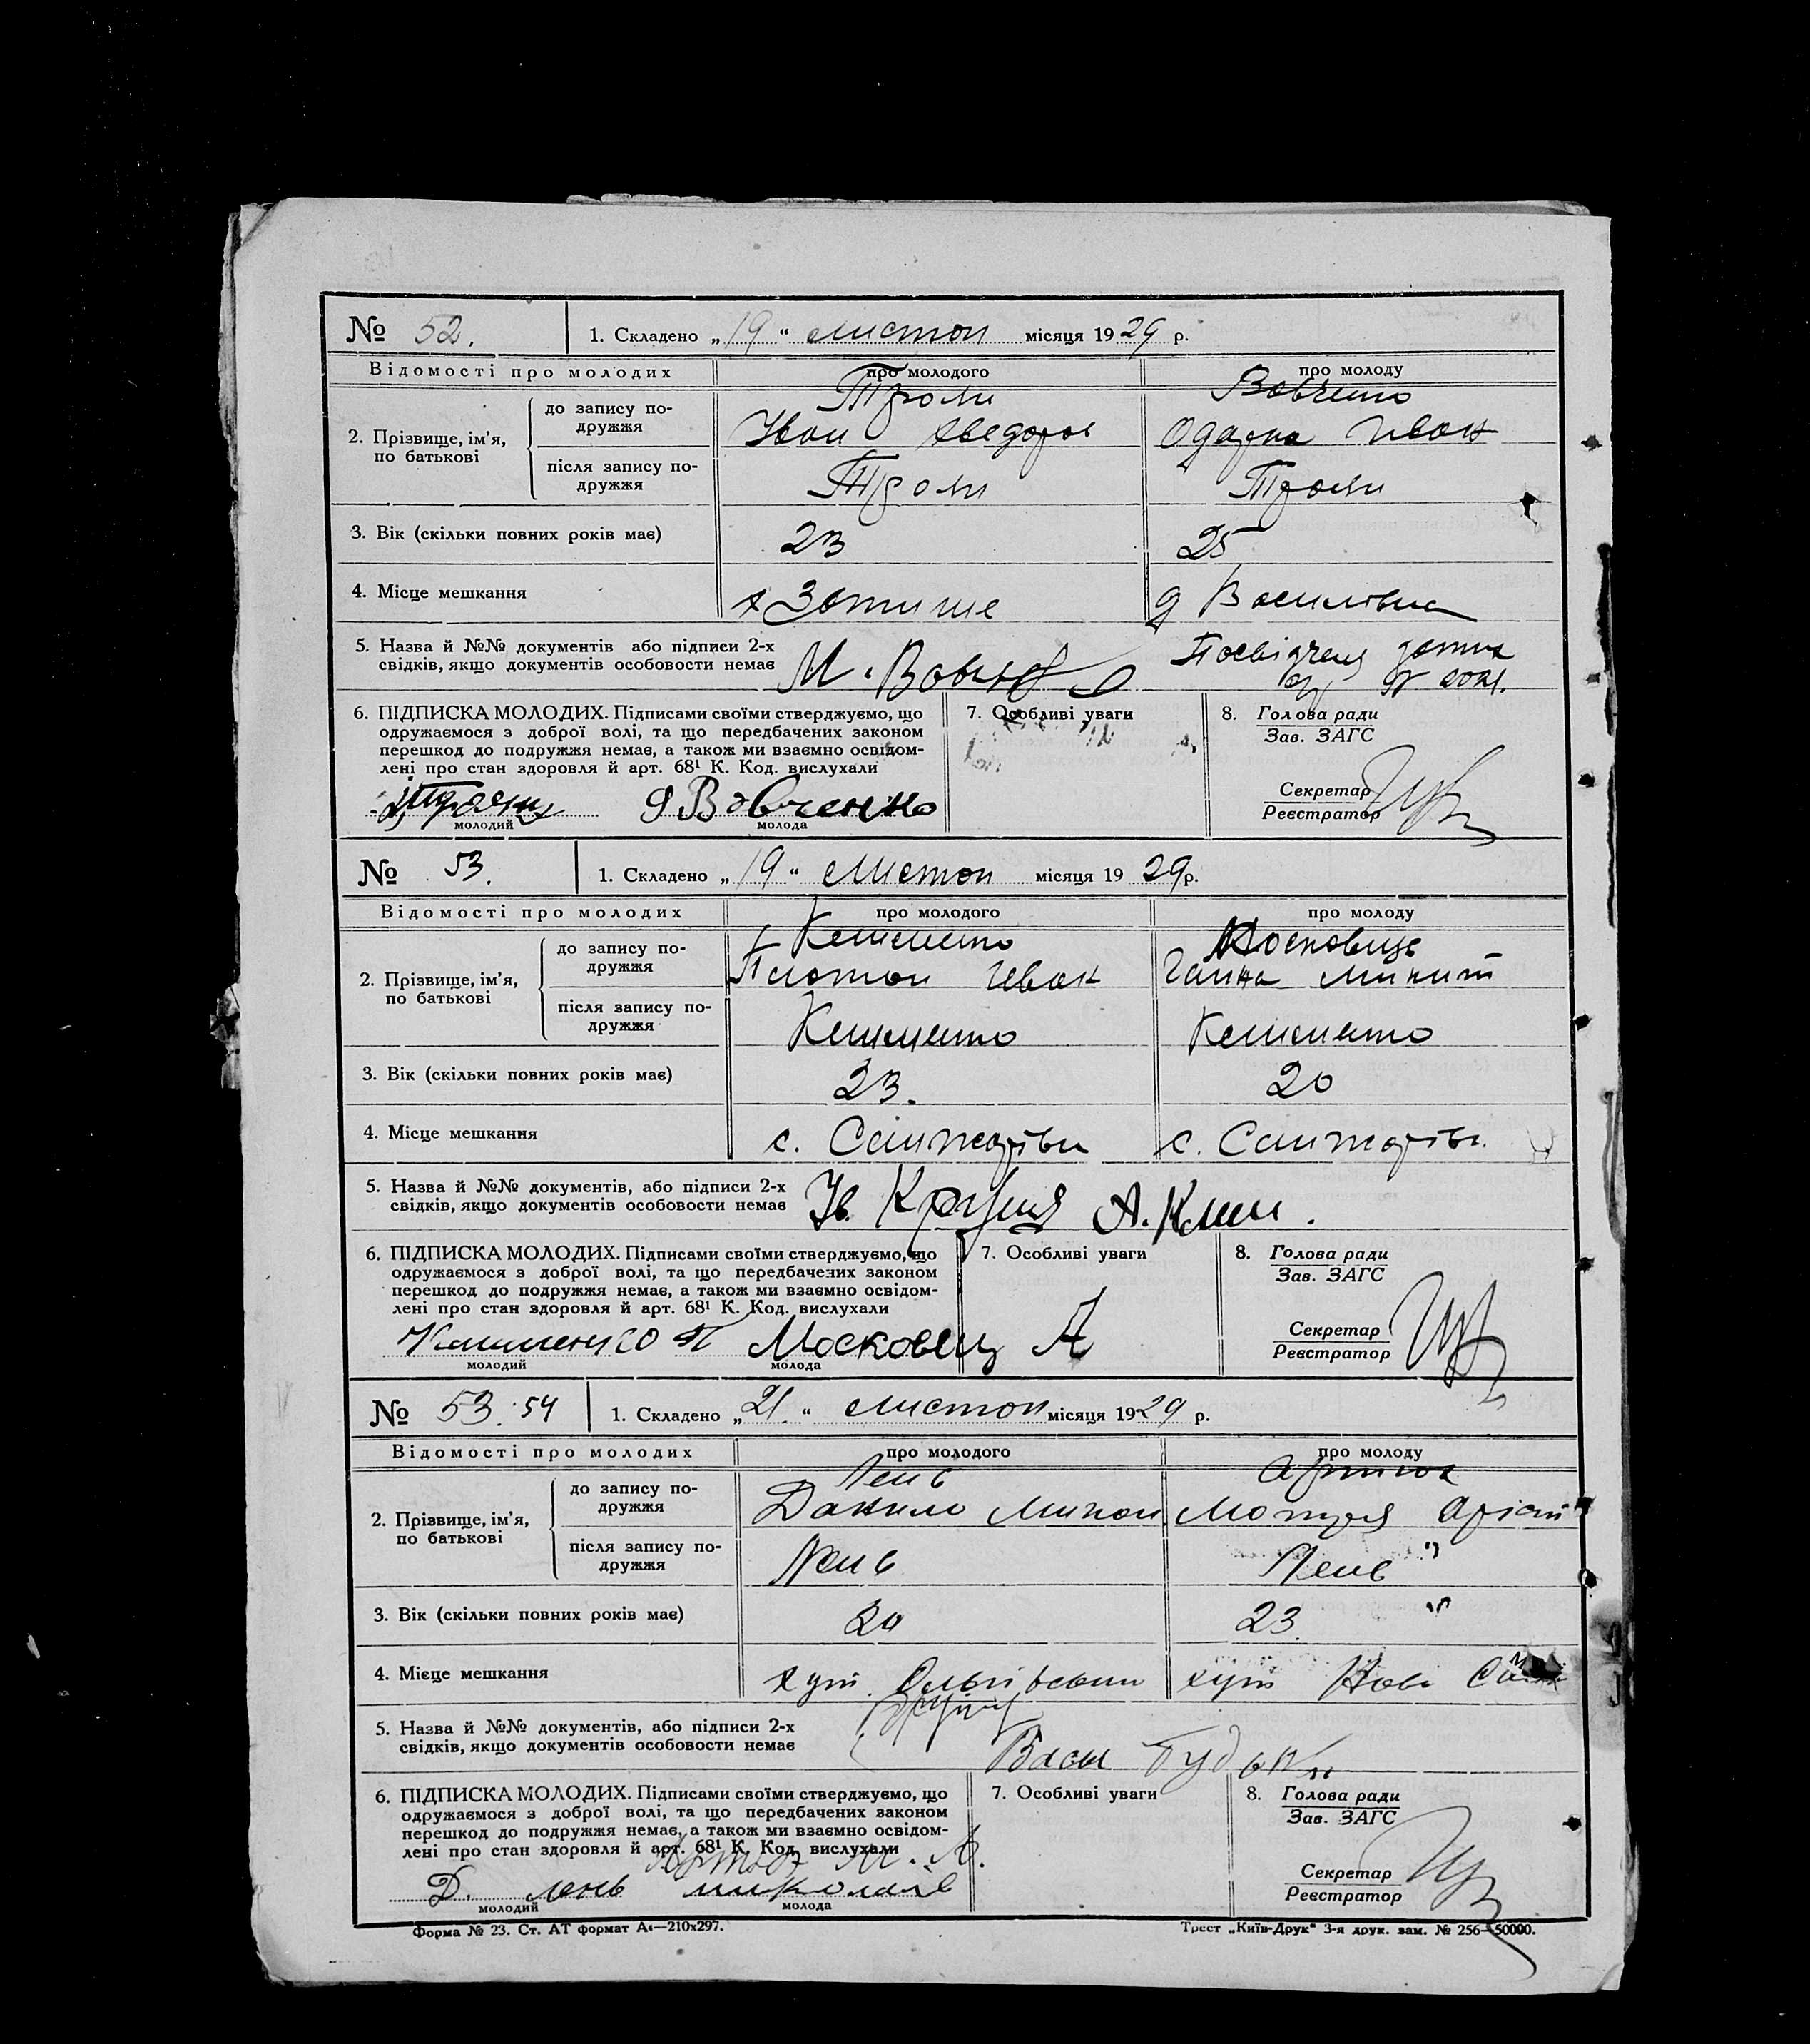 № 52. 1. Складено „19“ листоп місяця 1929 р.
Відомості про молодих про молодого про молоду
2. Прізвище, ім'я, по батькові
до запису по-
дружжя
Троян Вовченко
Іван Хведоров Одарка Іван
після запису по-
дружжя
Троян Троян
3. Вік (скільки повних років має) 23 25
4. Місце мешкання х Затише д Василівка
5. Назва й №№ документів або підписи 2-х
свідків, якщо документів особовости немає
М. Посвідчення
6. ПІДПИСКА МОЛОДИХ. Підписами своїми стверджуємо, що
одружаємося з доброї волі, та що передбачених законом
перешкод до подружжя немає, а також ми взаємно освідом-
лені про стан здоров'я й арт. 68¹ К. Код. вислухали
Вовченко
молодий молода
7. Особливі уваги
8. Голова ради
Зав. ЗАГС
Секретар
Реєстратор
№ 53. 1. Складено „19“ листоп місяця 1929 р.
Відомості про молодих про молодого про молоду
2. Прізвище, ім'я, по батькові
до запису по-
дружжя
Клименко Московець
Платон Іван Ганна Микит
після запису по-
дружжя
Клименко Клименко
3. Вік (скільки повних років має) 23. 20
4. Місце мешкання с. с.
5. Назва й №№ документів, або підписи 2-х
свідків, якщо документів особовости немає
Ів. А. Клим.
6. ПІДПИСКА МОЛОДИХ. Підписами своїми стверджуємо, що
одружаємося з доброї волі, та що передбачених законом
перешкод до подружжя немає, а також ми взаємно освідом-
лені про стан здоровля й арт. 68¹ К. Код. вислухали
Клименко П Московец А
молодий молода
7. Особливі уваги
8. Голова ради
Зав. ЗАГС
Секретар
Реєстратор
№ 53. 54 1. Складено „21.“ листоп місяця 1929 р.
Відомості про молодих про молодого про молоду
2. Прізвище, ім'я, по батькові
до запису по-
дружжя
Лень Артюх
Данило Микол Мотря
після запису по-
дружжя
Лень Лень "
3. Вік (скільки повних років має) 20 23 "
4. Місце мешкання хут. хут Нові
5. Назва й №№ документів, або підписи 2-х
свідків, якщо документів особовости немає
Васил
6. ПІДПИСКА МОЛОДИХ. Підписами своїми стверджуємо, що
одружаємося з доброї волі, та що передбачених законом
перешкод до подружжя немає, а також ми взаємно освідом-
лені про стан здоровля й арт. 68¹ К. Код. вислухали
Артюх М. А.
Д. лень
молодий молода
7. Особливі уваги
8. Голова ради
Зав. ЗАГС
Секретар
Реєстратор
Форма № 23. Ст. АТ формат А₄—210х297. Трест „Київ-Друк“ 3-я друк. зам. № 256—50000.